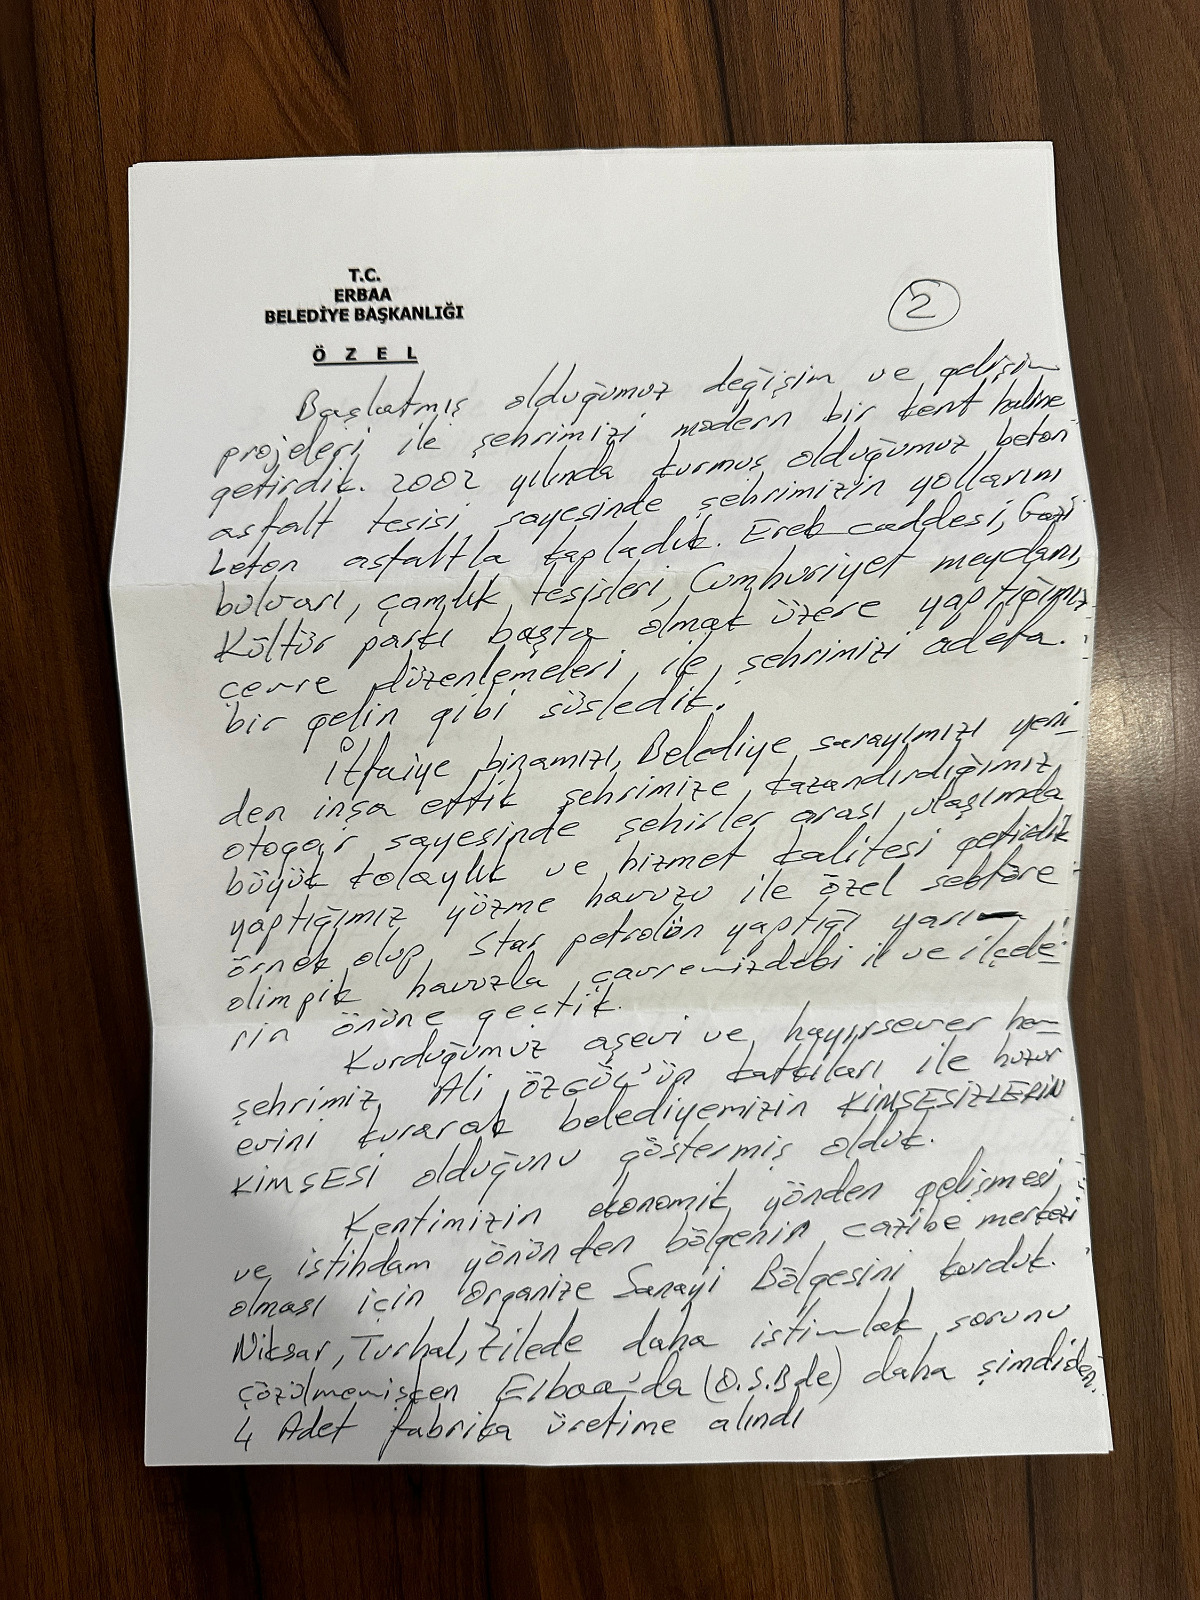 T.C.
ERBAA
BELEDİYE BAŞKANLIĞI
Ö Z E L
2
Başlatmış olduğumuz değişim ve gelişim
projeleri ile şehrimizi modern bir kent haline
getirdik. 2002 yılında kurmuş olduğumuz beton
asfalt tesisi sayesinde şehrimizin yollarını
beton asfaltla kapladık. Erek caddesi, Gazi
bulvarı, çamlık tesisleri, Cumhuriyet meydanı,
Kültür parkı başta olmak üzere yaptığımız
çevre düzenlemeleri ile şehrimizi adeta
bir gelin gibi süsledik.
İtfaiye binamızı, Belediye sarayımızı yeni-
den inşa ettik şehrimize kazandırdığımız
otogar sayesinde şehirler arası ulaşımda
büyük kolaylık ve hizmet kalitesi getirdik
yaptığımız yüzme havuzu ile özel sektöre
örnek olup Star petrolün yaptığı yarı
olimpik havuzla çevremizdeki il ve ilçele-
rin önüne geçtik.
Kurduğumuz aşevi ve hayırsever hem-
şehrimiz Ali ÖZGÜÇ'ün katkıları ile huzur
evini kurarak belediyemizin KİMSESİZLERİN
KİMSESİ olduğunu göstermiş olduk.
Kentimizin ekonomik yönden gelişmesi
ve istihdam yönünden bölgenin cazibe merkezi
olması için Organize Sanayi Bölgesini kurduk.
Niksar, Turhal, Zilede daha istimlak sorunu
çözülmemişken Erbaa'da (O.S.B de) daha şimdiden
4 Adet fabrika üretime alındı